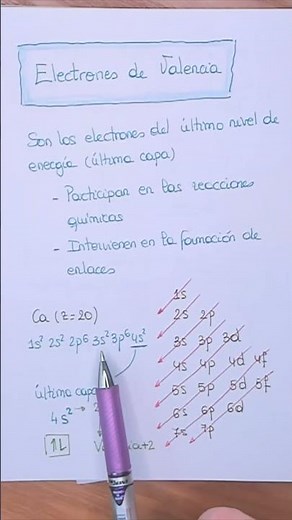 Electrones de Valencia
Son los electrones del último nivel de
energía (última capa)
- Participan en las reacciones
químicas
- Intervienen en la formación de
enlaces
Ca (z=20)
1s² 2s² 2p⁶ 3s² 3p⁶ 4s²
última capa
4s² →
1L
+2
1s
2s 2p
3s 3p 3d
4s 4p 4d 4f
5s 5p 5d 5f
6s 6p 6d
7s 7p